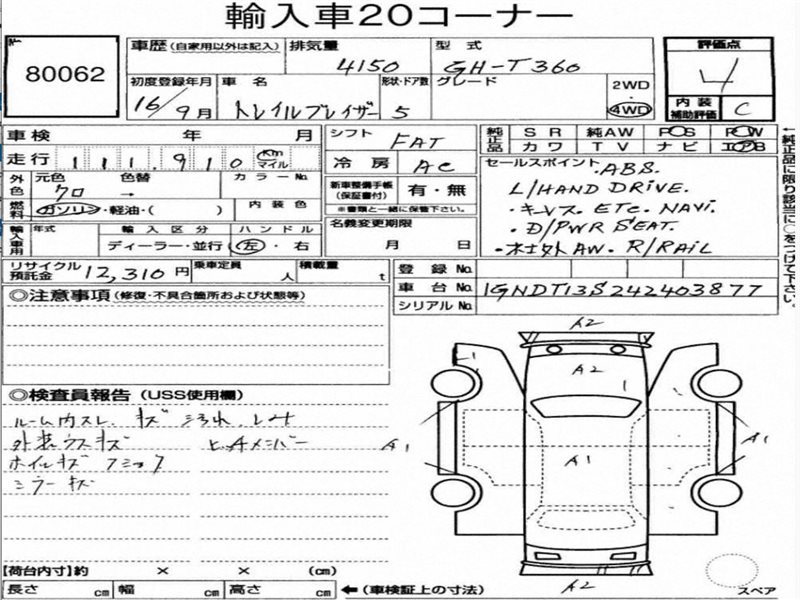 輸入車20コーナー
80062
車歴 (自家用以外は記入) 排気量 4150 型式 GH-T360
評価点 4
初度登録年月 16/9月 車名 トレイルブレイザー 形状・ドア数 5 グレード 2WD・4WD
内装補助評価 C
車検 年 月 シフト FAT 純正品 SR 純AW PS PW
カワ TV ナビ エアB
走行 111,910 Km マイル 冷房 AC
セールスポイント
・ABS.
L/HAND DRIVE.
・キーレス. ETC. NAVI.
・D/PWR SEAT.
・社外AW. R/RAIL
外色 元色 クロ 色替 → カラーNo.
新車整備手帳(保証書付) 有・無
※書類と一緒に保管下さい。
燃料 ガソリン・軽油・( ) 内装色
名義変更期限 月 日
輸入車用 年式 輸入区分 ディーラー・並行 ハンドル 左・右
←純正品に限り該当に○をつけて下さい。
リサイクル預託金 12,310円 乗車定員 人 積載量 t
登録No.
車台No. 1GNDT13S242403877
シリアルNo.
◎注意事項 (修復・不具合個所および状態等)
◎検査員報告 (USS使用欄)
ルーム内スレ. キズ 汚れ.
外装ウスキズ ヒッチメンバー
ホイルキズ
ミラーキズ
A2
A2
1
1
A1
A1
A1
A2
【荷台内寸】約 × × (cm)
長さ cm 幅 cm 高さ cm ←(車検証上の寸法)
スペア